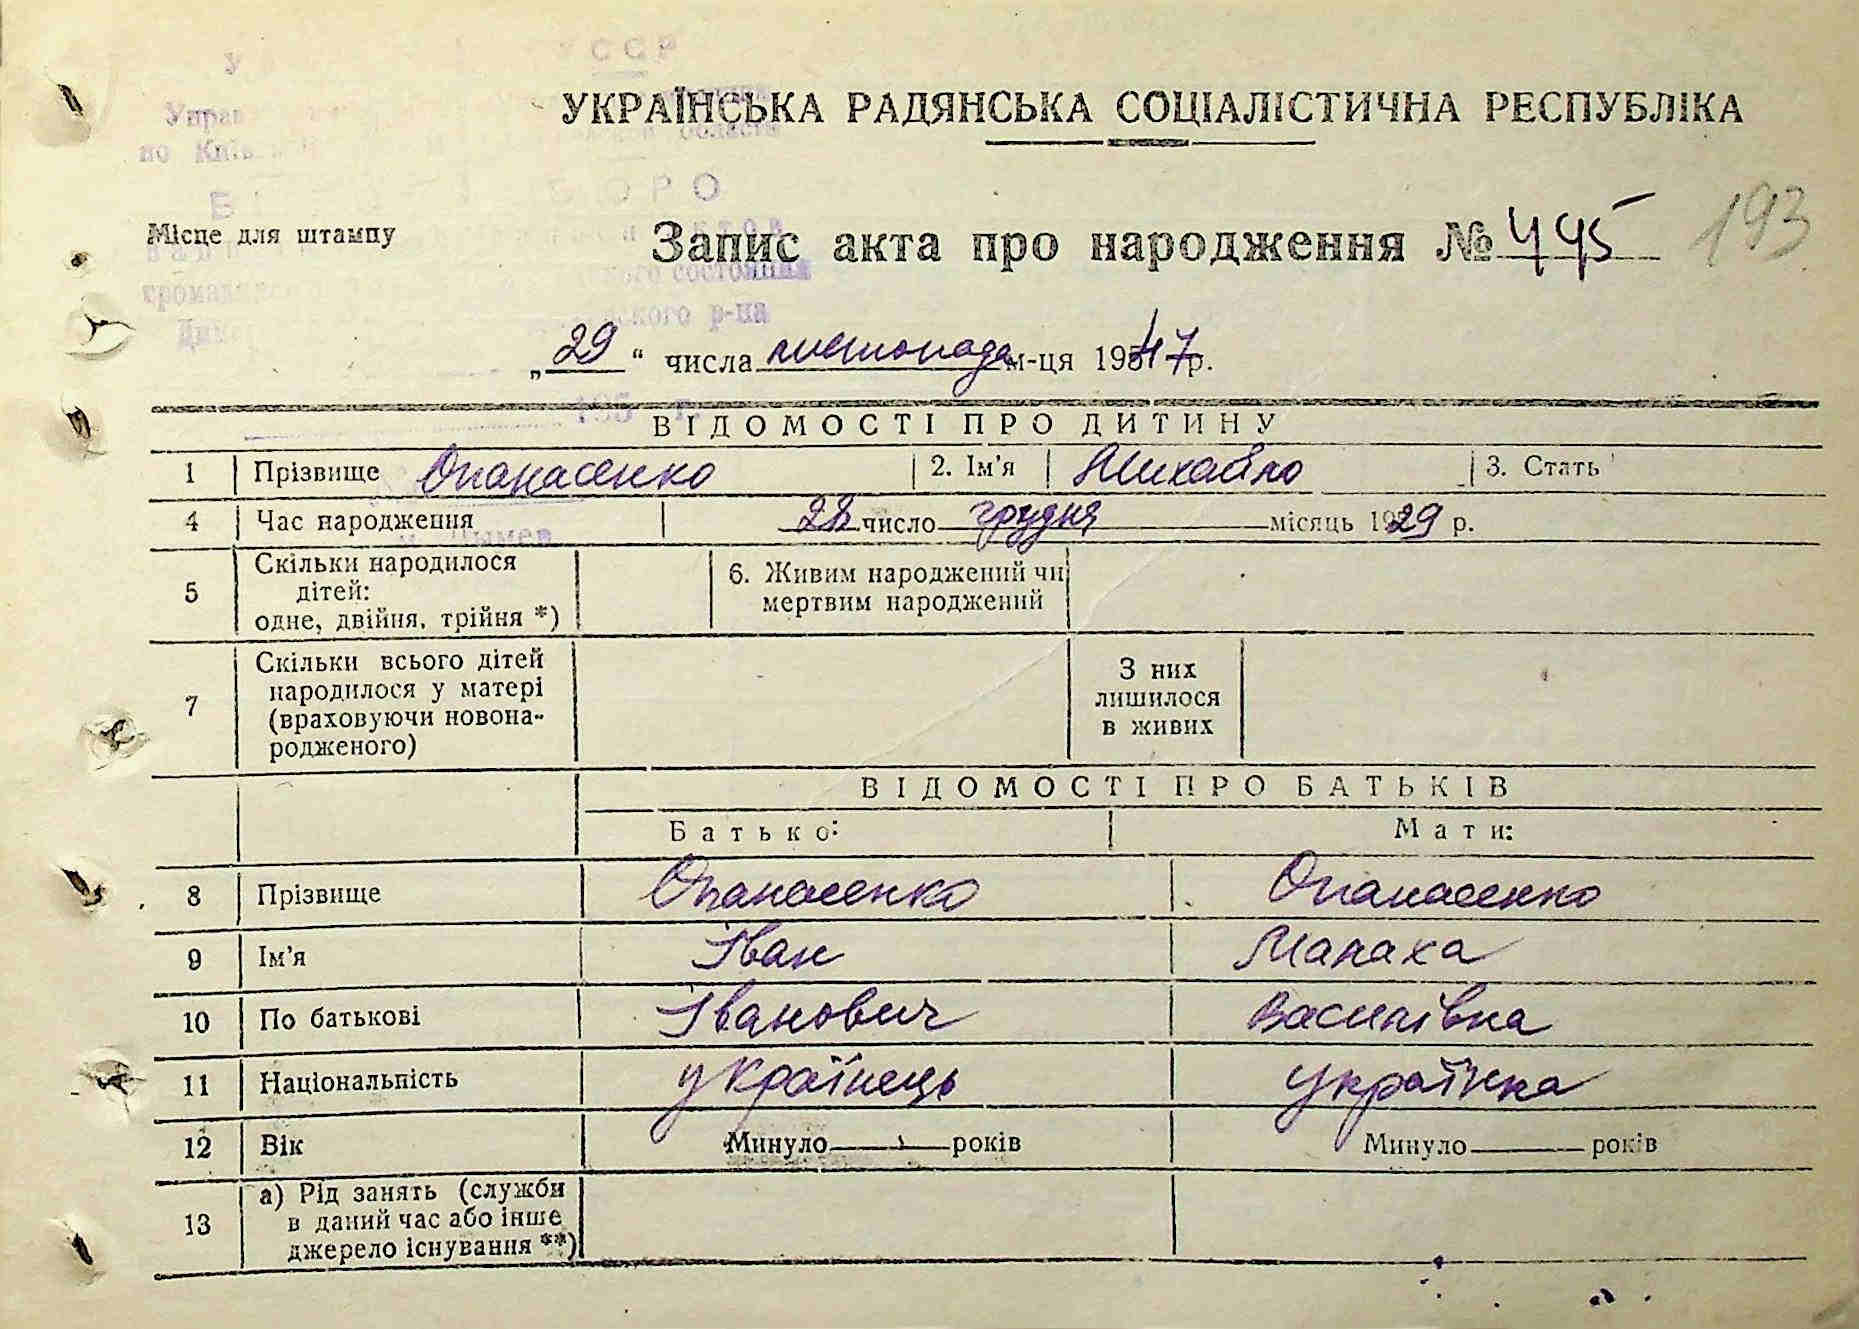 УССР
УКРАЇНСЬКА РАДЯНСЬКА СОЦІАЛІСТИЧНА РЕСПУБЛІКА
области
БЮРО
193
Місце для штампу
Запис акта про народження № 495
состояния
р-на
„29“ числа листопада м-ця 1947 р.
195 г.
ВІДОМОСТІ ПРО ДИТИНУ
1 Прізвище Опанасенко 2. Ім'я Михайло 3. Стать
4 Час народження 28 число грудня місяць 1929 р.
5 Скільки народилося
дітей:
одне, двійня, трійня *)
6. Живим народжений чи
мертвим народжений
7 Скільки всього дітей
народилося у матері
(враховуючи новона-
родженого)
З них
лишилося
в живих
ВІДОМОСТІ ПРО БАТЬКІВ
Батько: Мати:
8 Прізвище Опанасенко Опанасенко
9 Ім'я Іван Малаха
10 По батькові Іванович Василівна
11 Національність українець українка
12 Вік Минуло років Минуло років
13 а) Рід занять (служби
в даний час або інше
джерело існування **)